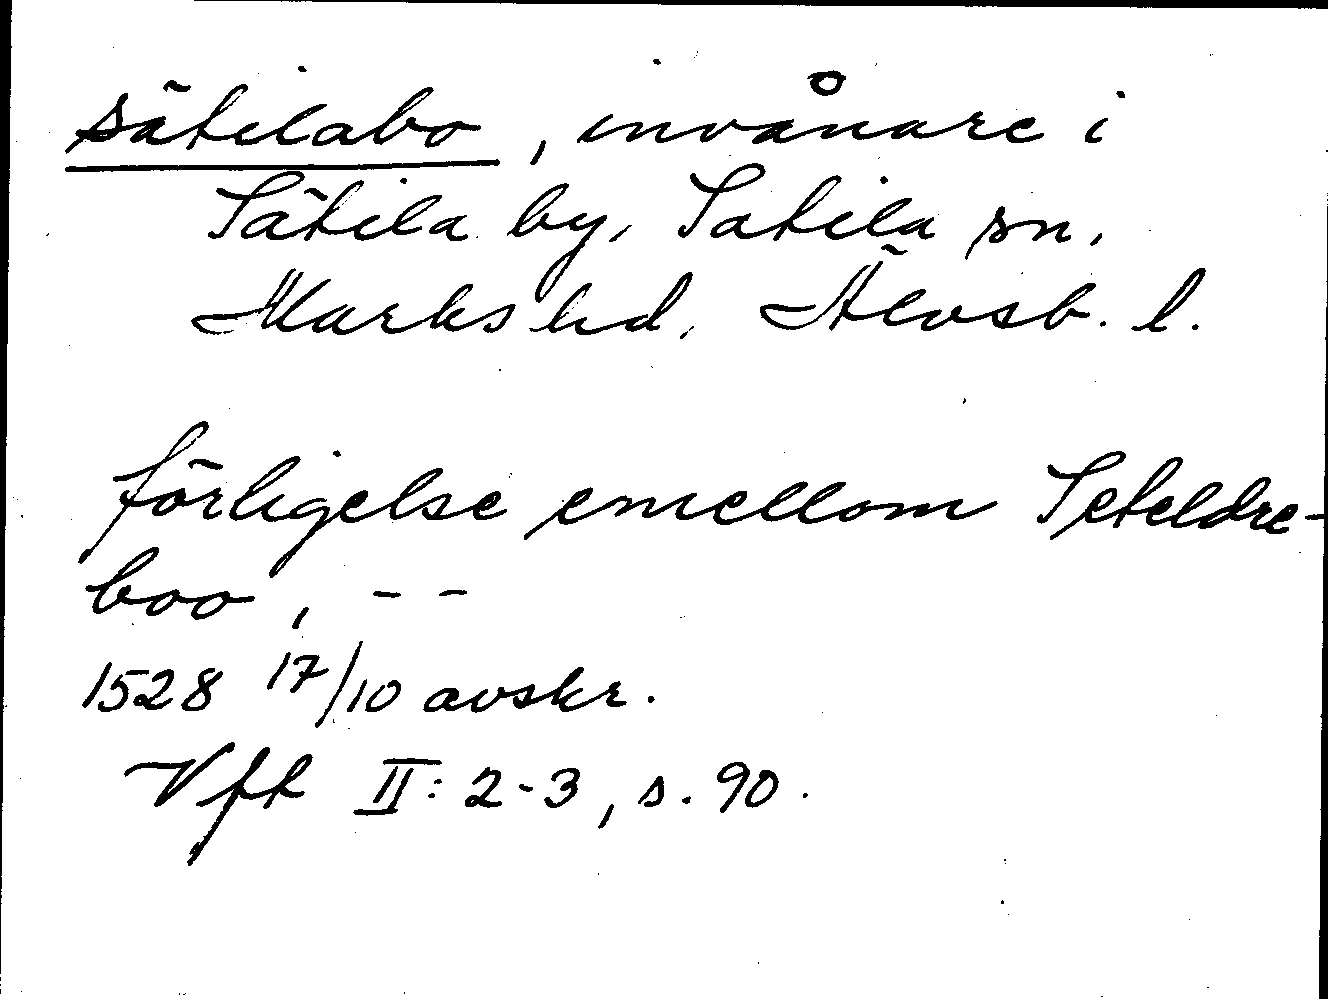 sätilabo, invånare i
Sätila by, Satila sn,
Marks hd, Älvsb. l.
förligelse emellom Seteldre-
boo, - -
1528 17/10 avskr.
Vft II: 2-3, s. 90.